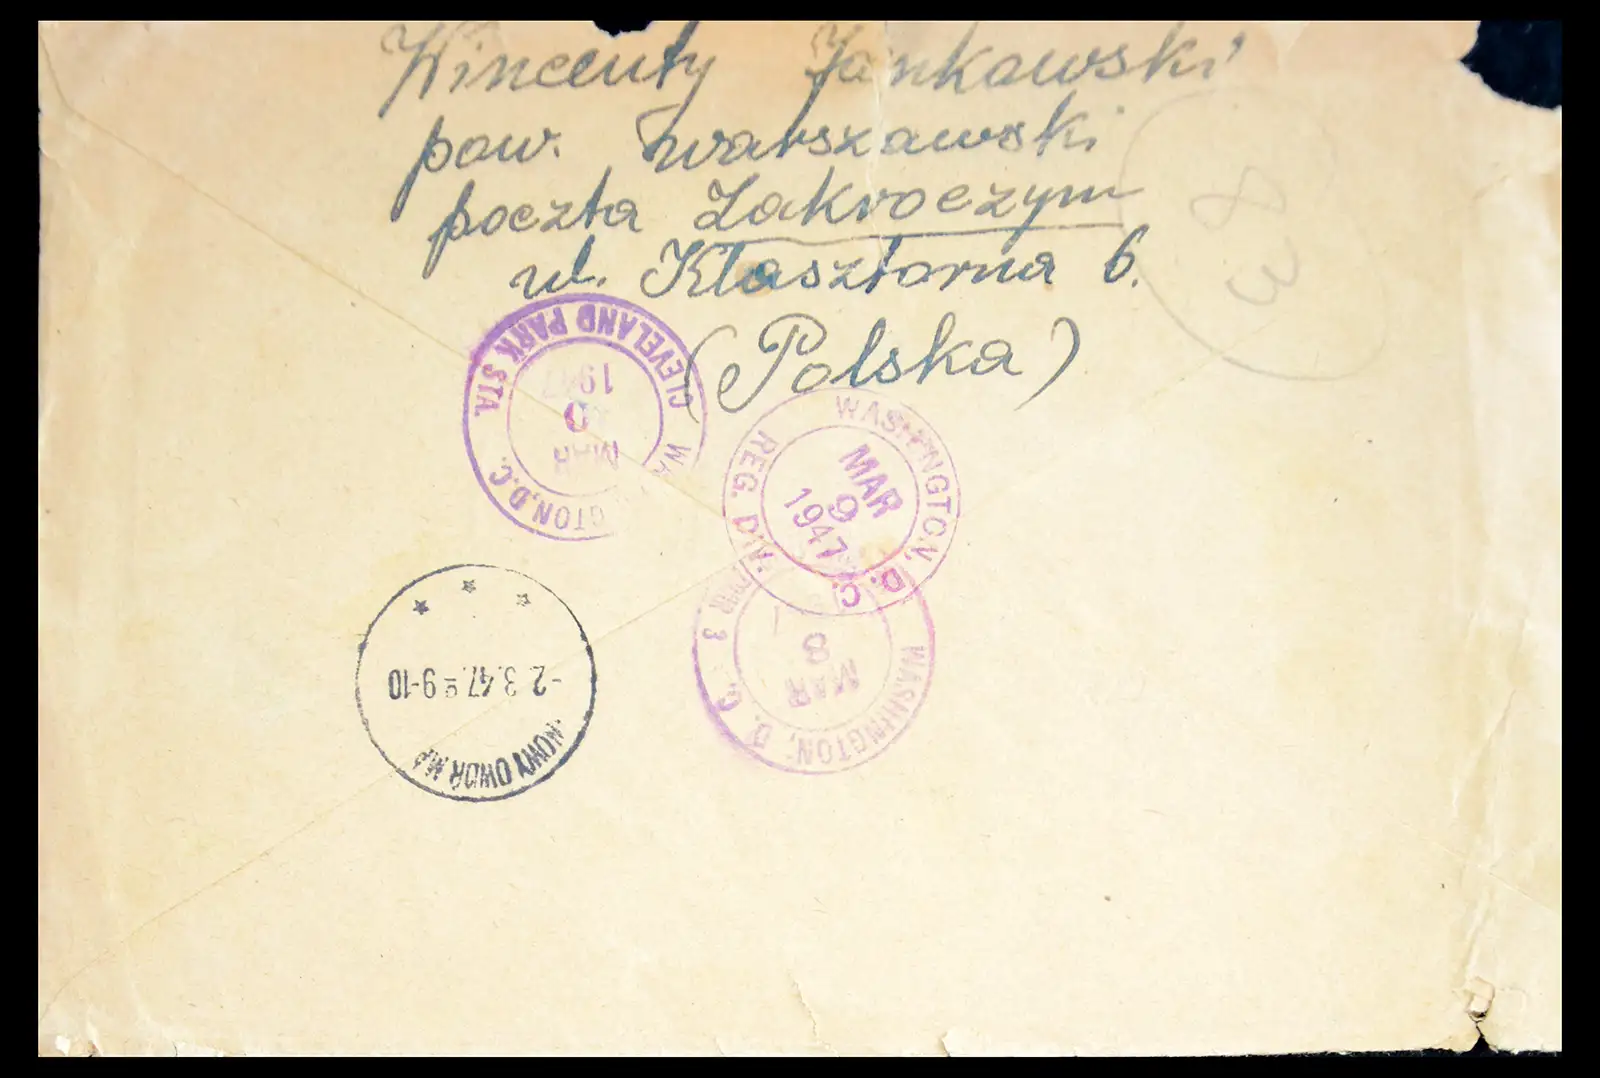 Wincenty Jankowski
pow. Warszawski
poczta Zakroczym
ul. Klasztorna 6.
(Polska)
83
CLEVELAND PARK STA.
WASHINGTON, D.C.
MAR
1947
WASHINGTON, D. C.
REG. DIV.
MAR
9
1947
WASHINGTON, D. C.
3
MAR
8
-2.3.47.9-10
NOWY DWÓR